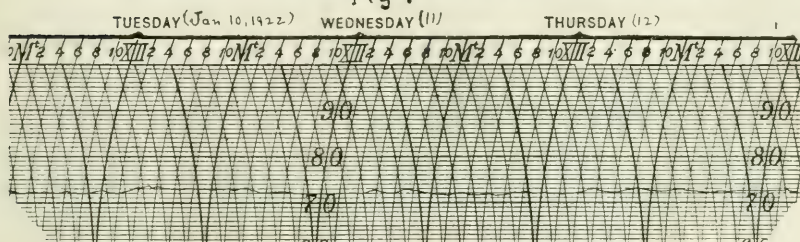 TUESDAY (Jan 10, 1922) WEDNESDAY (11) THURSDAY (12)
Mt 2 4 6 8 10 XII 2 4 6 8 10 Mt 2 4 6 8 10 XII 2 4 6 8 10 Mt 2 4 6 8 10 XII 2 4 6 8 10 Mt 2 4 6 8 10 XII
90 90
80 80
70 70